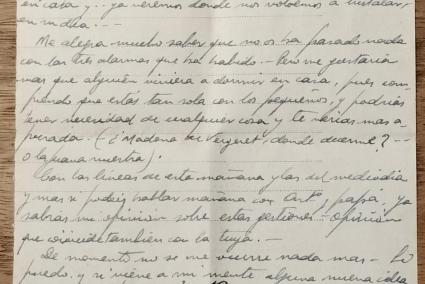 en casa y .. ya veremos donde nos volvemos a instalar,
en
Me alegra mucho saber que no os ha pasado nada
con las tres alarmas que ha habido. - Pero me gustaría
mas que alguién viniera a dormir en casa, pues com-
prendo que estás tan sola con los pequeños, y podrías
tener necesidad de cualquier cosa y te verías mas a-
purada. (¿Madona de Vergeret, donde duerme? --
o la juana nuestra).
Con las lineas de esta mañana y las del mediodia
y mas si podeis hablar mañana con Artº y papá, ya
sabras mi opinión sobre estas gestiones - opinión
que coincide también con la tuya. -
De momento no se me ocurre nada mas - Lo
puedo, y si viene a mi mente alguna nueva idea